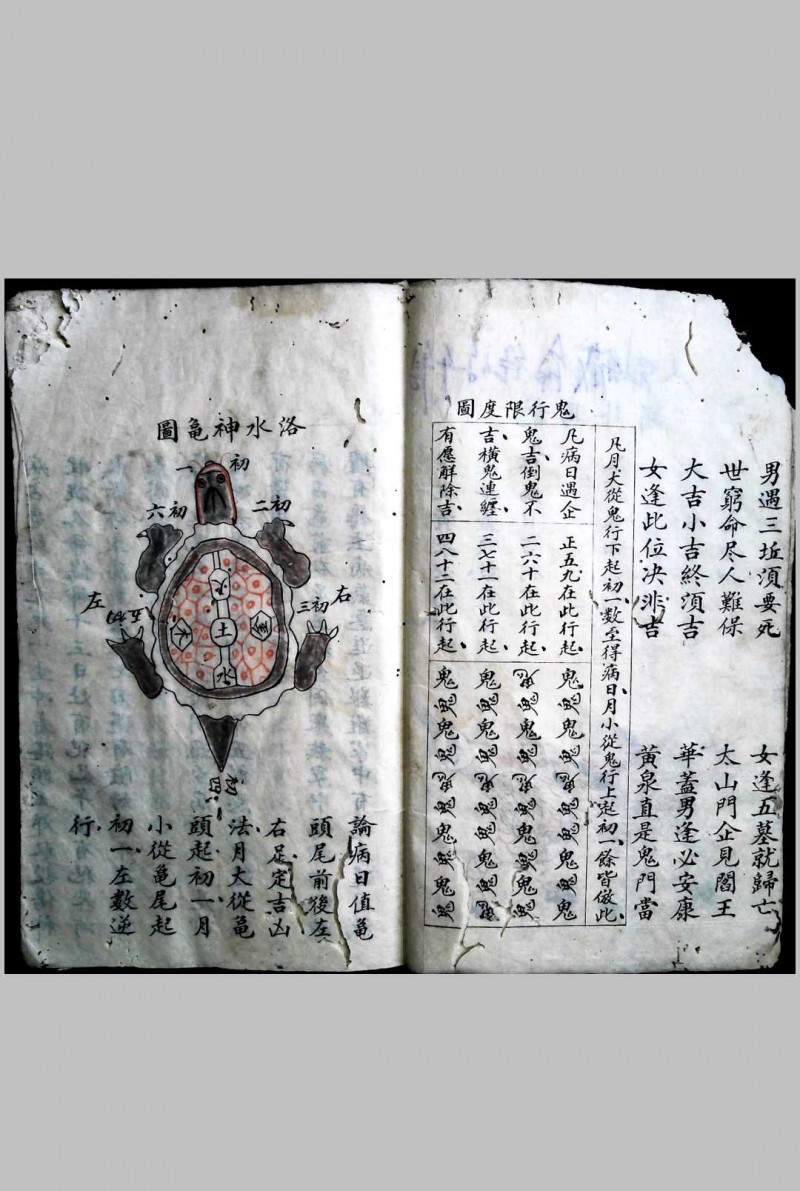 男遇三坵湏要死
女逢五墓就歸亡
世窮命尽人難保
太山門企見閻王
大吉小吉終湏吉
華蓋男逢必安康
女逢此位决非吉
黃泉直是鬼門當
鬼行限度圖
凡月大從鬼行下起初一数至得病日、月小從鬼行上起初一、餘皆倣此、
凡病日遇企
鬼吉倒鬼不
吉橫鬼連纏、
有愿解除吉、
正五九在此行起、
二六十在此行起、
三七十一在此行起、
四八十二在此行起、
鬼鬼鬼鬼鬼鬼鬼鬼鬼鬼
鬼鬼鬼鬼鬼鬼鬼鬼鬼鬼
鬼鬼鬼鬼鬼鬼鬼鬼鬼鬼
鬼鬼鬼鬼鬼鬼鬼鬼鬼鬼
洛水神亀圖
初一
初二
初三
初四
初五
初六
右
左
火
金
土
木
水
論病日值亀
頭尾前後左
右足定吉凶
法、月大從亀
頭起初一月
小從亀尾起
初一、左數逆
行、